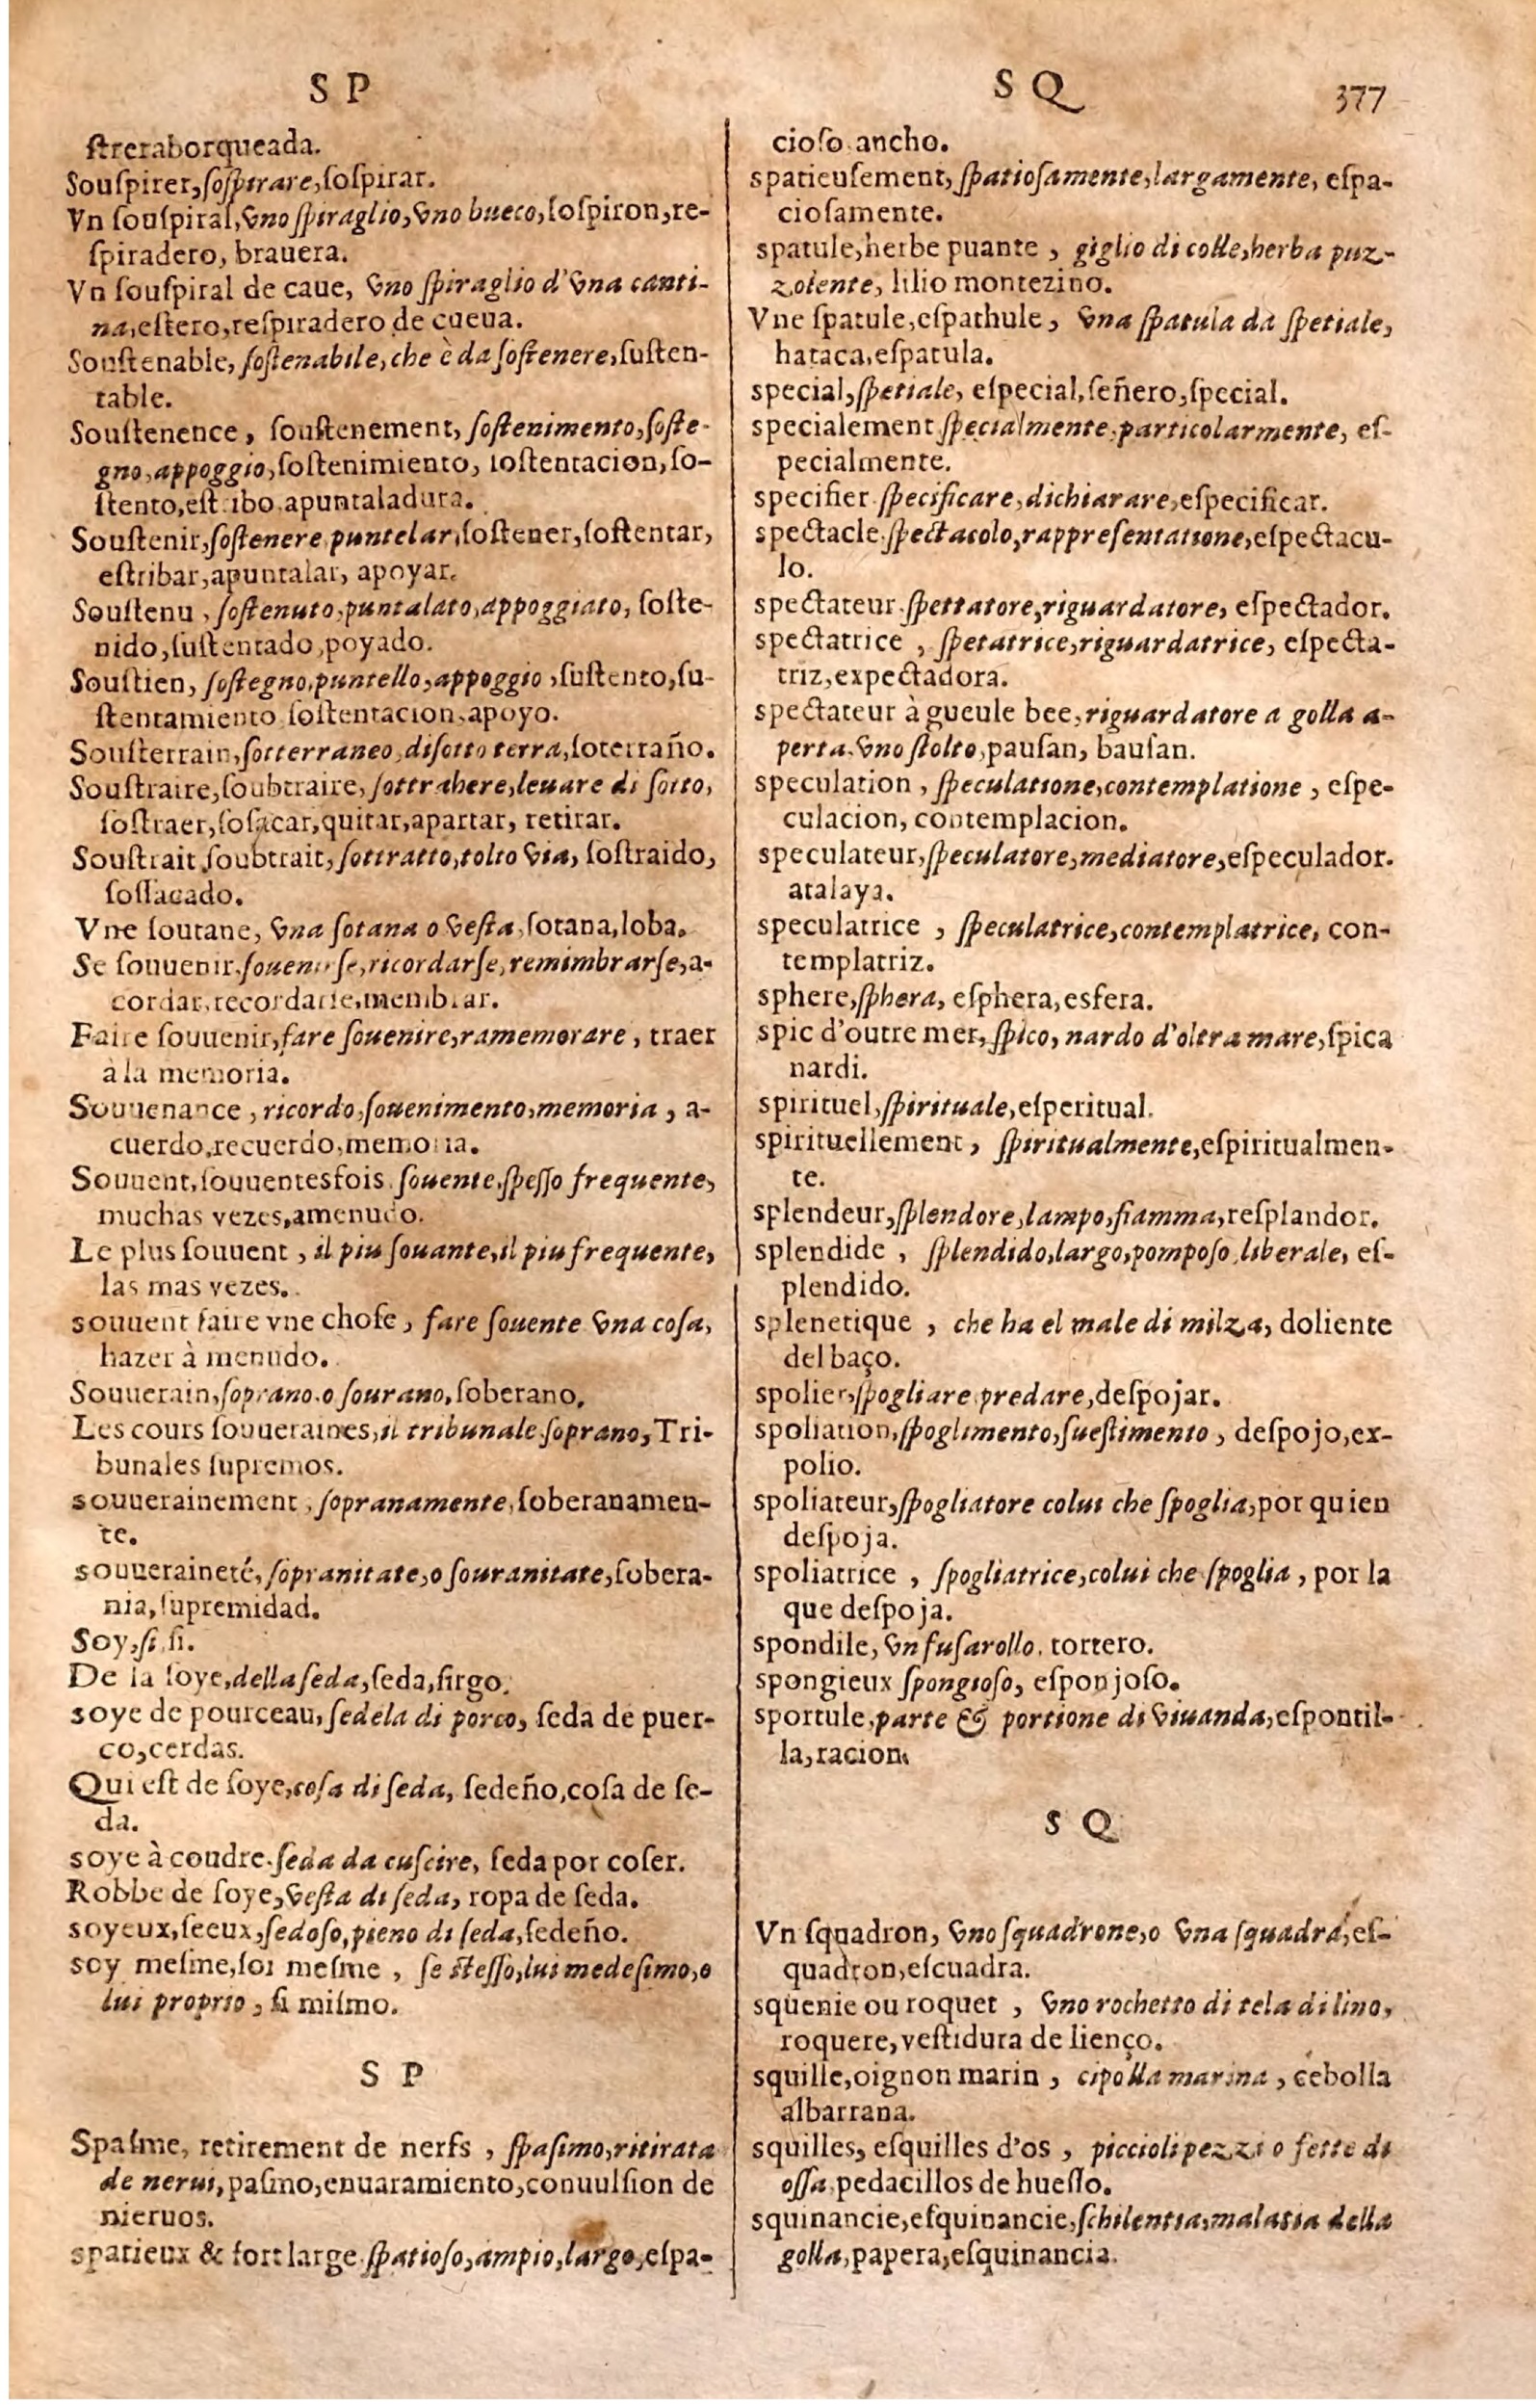 S P
S Q
377
ſtreraborqueada.
Souſpirer,ſoſpirare,ſoſpirar.
Vn ſouſpiral,vno ſpiraglio,vno buco,ſoſpiron,re-
ſpiradero, brauera.
Vn ſouſpiral de caue, vno ſpiraglio d'vna canti-
na,eſtero,reſpiradero de cueua.
Souſtenable, ſoſtenabile,che è da ſoſtenere,ſuſten-
table.
Souſtenence, ſouſtenement, ſoſtenimento,ſoſte-
gno,appoggio,ſoſtenimiento, ſoſtentacion,ſo-
ſtento,eſtribo,apuntaladura.
Souſtenir,ſoſtenere,puntelar,ſoſtener,ſoſtentar,
eſtribar,apuntalar, apoyar.
Souſtenu, ſoſtenuto,puntalato,appoggiato, ſoſte-
nido,ſuſtentado,poyado.
Souſtien, ſoſtegno,puntello,appoggio,ſuſtento,ſu-
ſtentamiento,ſoſtentacion,apoyo.
Souſterrain,ſotterraneo,diſotto terra,ſoterraño.
Souſtraire,ſoubtraire, ſottrahere,leuare di ſotto,
ſoſtraer,ſoſacar,quitar,apartar, retirar.
Souſtrait,ſoubtrait, ſottratto,tolto via, ſoſtraido,
ſoſſacado.
Vne ſoutane, vna ſotana o veſta,ſotana,loba.
Se ſouuenir,ſouenirſe,ricordarſe,remimbrarſe,a-
cordar,recordarſe,membrar.
Faire ſouuenir,fare ſouenire,ramemorare, traer
à la memoria.
Souuenance, ricordo,ſouenimento,memoria, a-
cuerdo,recuerdo,memoria.
Souuent,ſouuentesfois,ſouente,ſpeſſo frequente,
muchas vezes,amenudo.
Le plus ſouuent, il piu ſouante,il piu frequente,
las mas vezes.
souuent faire vne choſe, fare ſouente vna coſa,
hazer à menudo.
Souuerain,ſoprano,o ſourano,ſoberano.
Les cours ſouueraines,il tribunale ſoprano,Tri-
bunales ſupremos.
souuerainement, ſopranamente,ſoberanamen-
te.
souueraineté,ſopranitate,o ſouranitate,ſobera-
nia,ſupremidad.
Soy,ſi,ſi.
De la ſoye,della ſeda,ſeda,ſirgo.
soye de pourceau,ſedela di porco, ſeda de puer-
co,cerdas.
Qui eſt de ſoye,coſa di ſeda, ſedeño,coſa de ſe-
da.
soye à coudre,ſeda da cuſcire, ſeda por coſer.
Robbe de ſoye,veſta di ſeda, ropa de ſeda.
soyeux,ſeeux,ſedoſo,pieno di ſeda,ſedeño.
soy meſme,ſoi meſme, ſe ſteſſo,lui medeſimo,o
lui proprio, ſi miſmo.
S P
Spaſme, retirement de nerfs, ſpaſimo,ritirata
de nerui,paſmo,enuaramiento,conuulſion de
nieruos.
spatieux & fort large,ſpatioſo,ampio,largo,eſpa-
cioſo ancho.
spatieuſement,ſpatioſamente,largamente, eſpa-
cioſamente.
spatule,herbe puante, giglio di colle,herba puz-
zolente, lilio montezino.
Vne ſpatule,eſpathule, vna ſpatula da ſpetiale,
hataca,eſpatula.
special,ſpetiale, eſpecial,ſeñero,ſpecial.
specialement,ſpecialmente,particolarmente, eſ-
pecialmente.
specifier,ſpecificare,dichiarare,eſpecificar.
spectacle,ſpectacolo,rappreſentatione,eſpectacu-
lo.
spectateur,ſpettatore,riguardatore, eſpectador.
spectatrice, ſpetatrice,riguardatrice, eſpecta-
triz,expectadora.
spectateur à gueule bee,riguardatore a golla a-
perta,vno ſtolto,pauſan, bauſan.
speculation, ſpeculatione,contemplatione, eſpe-
culacion, contemplacion.
speculateur,ſpeculatore,mediatore,eſpeculador.
atalaya.
speculatrice, ſpeculatrice,contemplatrice, con-
templatriz.
sphere,ſphera, eſphera,esfera.
spic d'outre mer,ſpico, nardo d'oltra mare,ſpica
nardi.
spirituel,ſpirituale,eſperitual.
spirituellement, ſpiritualmente,eſpiritualmen-
te.
splendeur,ſplendore,lampo,fiamma,reſplandor.
splendide, ſplendido,largo,pompoſo,liberale, eſ-
plendido.
splenetique, che ha el male di milza, doliente
del baço.
spolier,ſpogliare,predare,deſpojar.
spoliation,ſpoglimento,ſueſtimento, deſpojo,ex-
polio.
spoliateur,ſpogliatore colui che ſpoglia,por quien
deſpoja.
spoliatrice, ſpogliatrice,colui che ſpoglia, por la
que deſpoja.
spondile, vn fuſarollo, tortero.
spongieux ſpongioſo, eſponjoſo.
sportule,parte & portione di viuanda,eſpontil-
la,racion.
S Q
Vn ſquadron, vno ſquadrone,o vna ſquadra,eſ-
quadron,eſcuadra.
squenie ou roquet, vno rochetto di tela di lino,
roquere,veſtidura de lienço.
squille,oignon marin, cipolla marina, cebolla
albarrana.
squilles, eſquilles d'os, piccioli pezzi o fette di
oſſa,pedacillos de hueſſo.
squinancie,eſquinancie,ſchilentia,malatia della
golla,papera,eſquinancia.